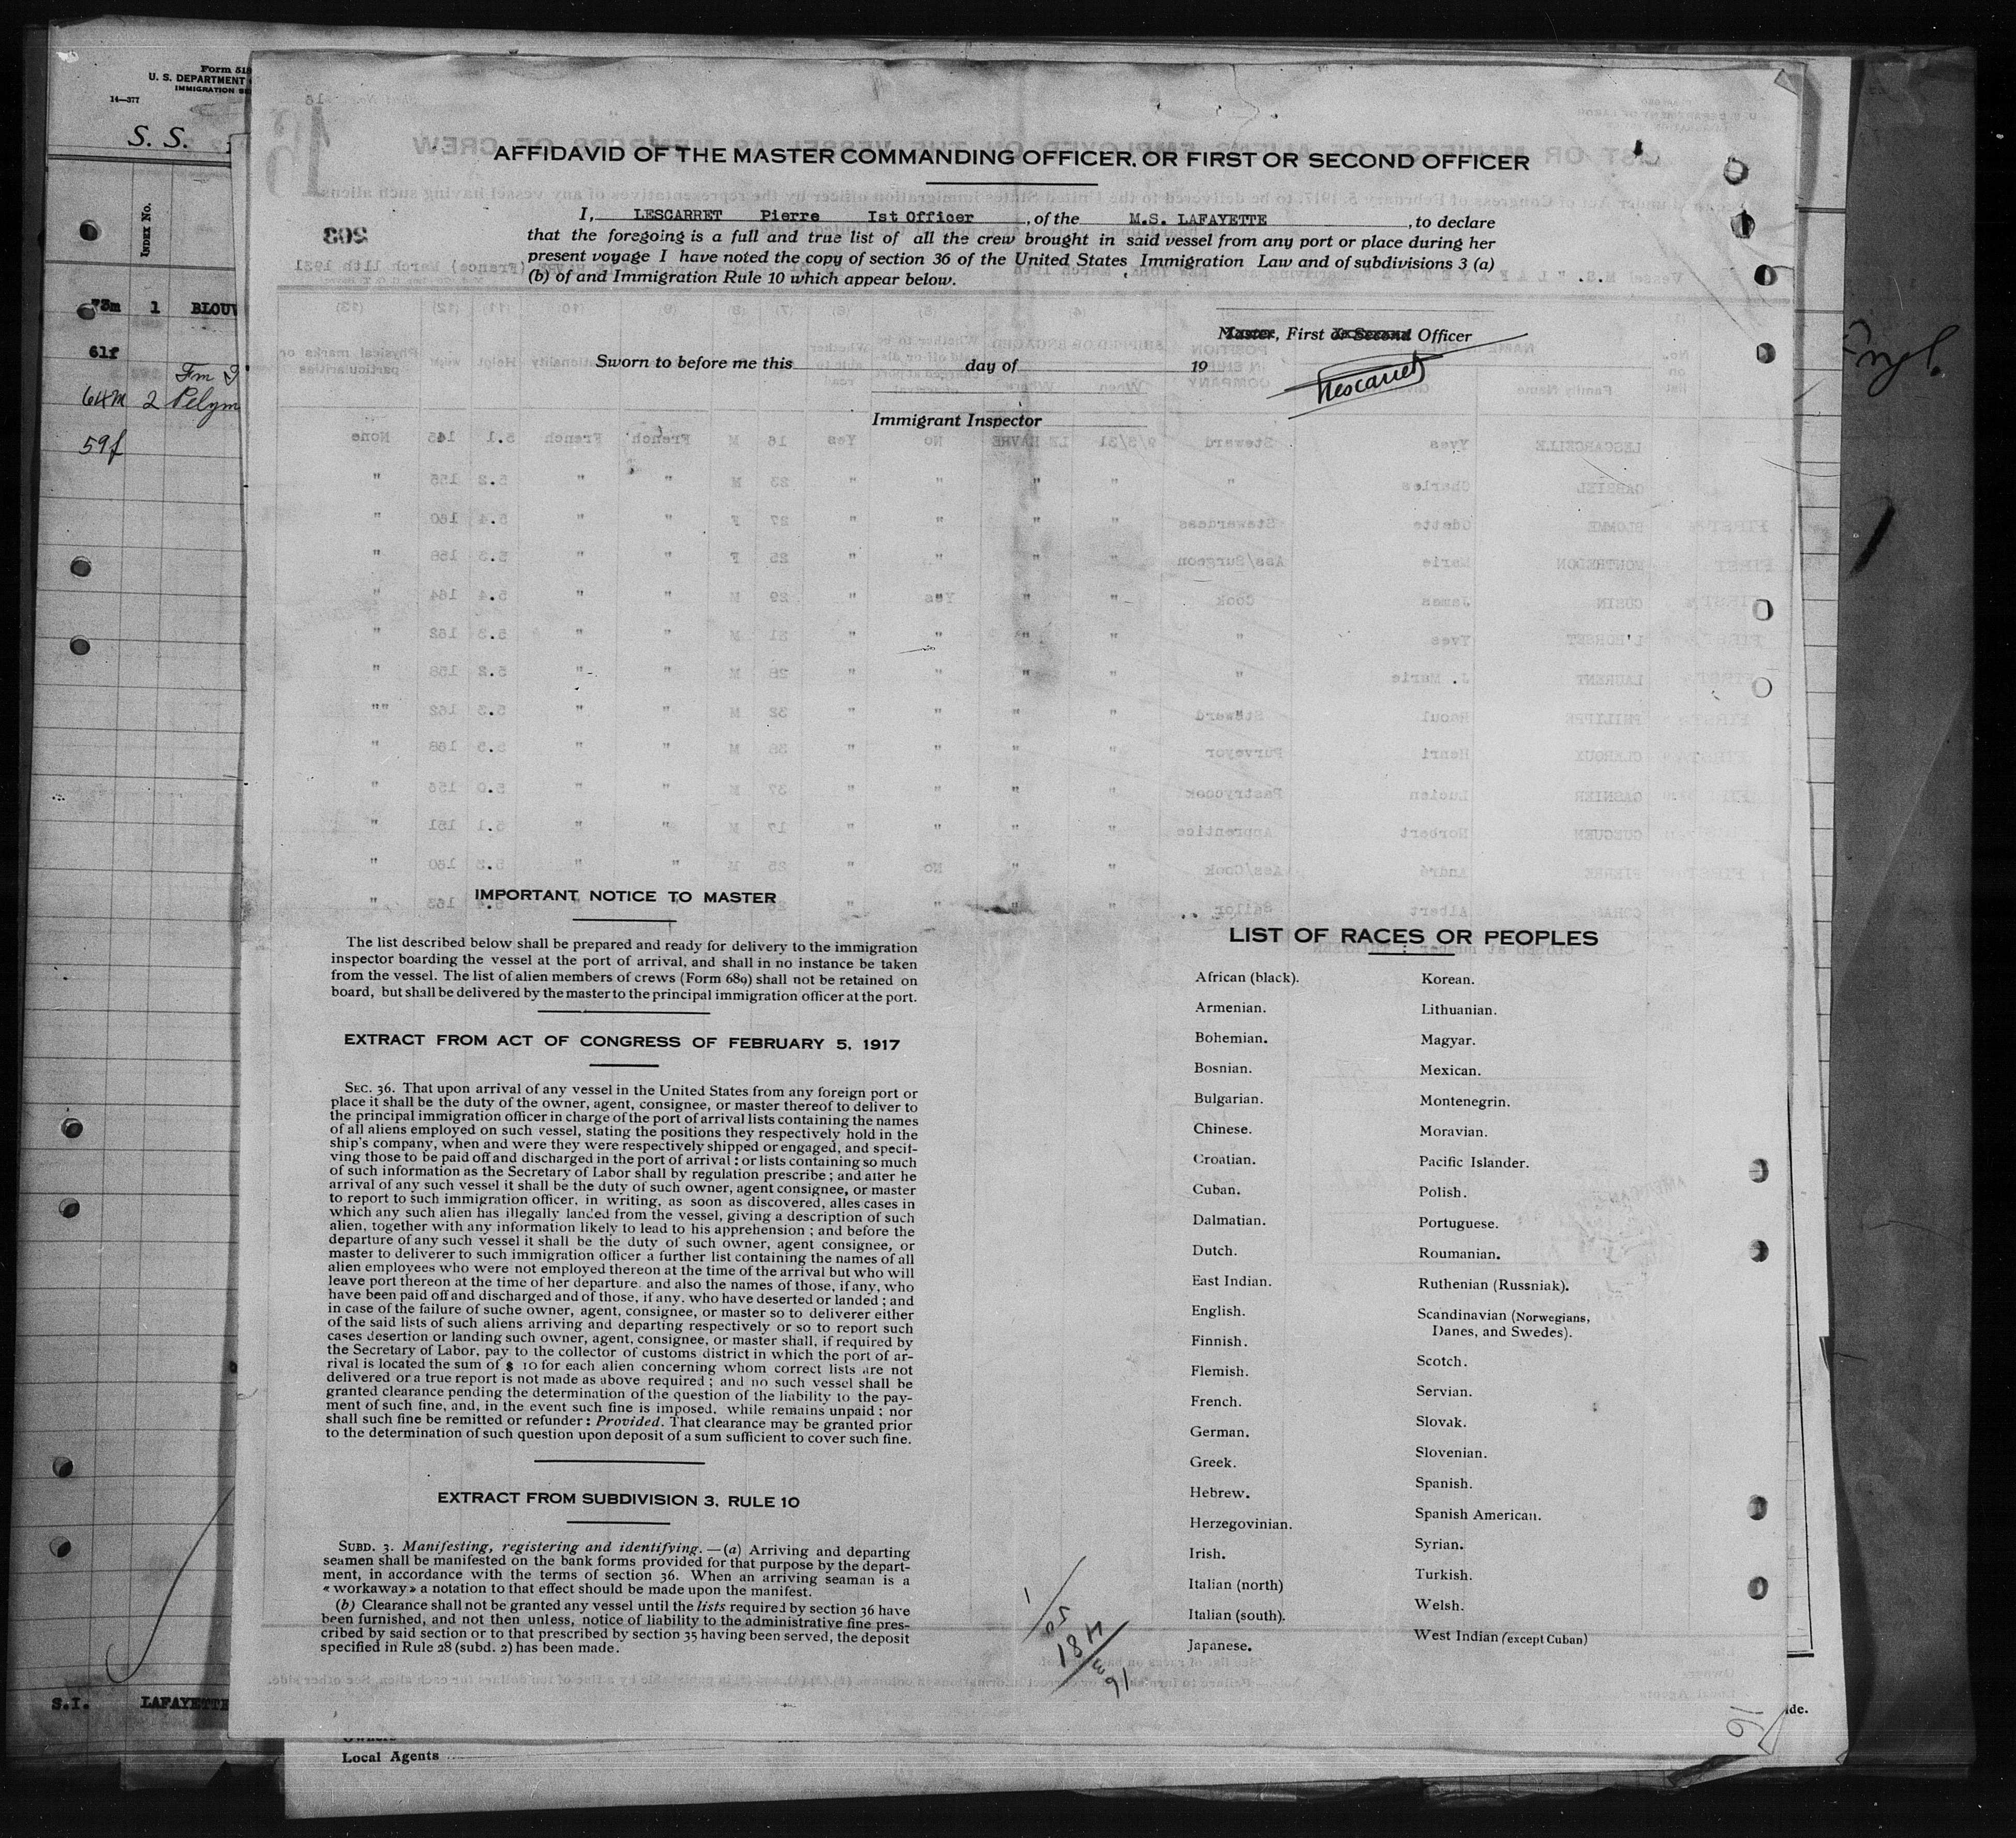 Form 518
U. S. DEPARTMENT
IMMIGRATION SE
14—377
S. S.
INDEX No.
73m 1 BLOUW
61f
64m 2 Pelym
59f
S.I. LAFAYETTE
AFFIDAVID OF THE MASTER COMMANDING OFFICER, OR FIRST OR SECOND OFFICER
I, LESCARRET Pierre Ist Officer, of the M.S. LAFAYETTE, to declare
that the foregoing is a full and true list of all the crew brought in said vessel from any port or place during her
present voyage I have noted the copy of section 36 of the United States Immigration Law and of subdivisions 3 (a)
(b) of and Immigration Rule 10 which appear below.
Master, First or Second Officer
Sworn to before me this day of 19
Lescarret
Immigrant Inspector
IMPORTANT NOTICE TO MASTER
The list described below shall be prepared and ready for delivery to the immigration
inspector boarding the vessel at the port of arrival, and shall in no instance be taken
from the vessel. The list of alien members of crews (Form 689) shall not be retained on
board, but shall be delivered by the master to the principal immigration officer at the port.
EXTRACT FROM ACT OF CONGRESS OF FEBRUARY 5, 1917
SEC. 36. That upon arrival of any vessel in the United States from any foreign port or
place it shall be the duty of the owner, agent, consignee, or master thereof to deliver to
the principal immigration officer in charge of the port of arrival lists containing the names
of all aliens employed on such vessel, stating the positions they respectively hold in the
ship's company, when and were they were respectively shipped or engaged, and specif-
ving those to be paid off and discharged in the port of arrival : or lists containing so much
of such information as the Secretary of Labor shall by regulation prescribe ; and atter he
arrival of any such vessel it shall be the duty of such owner, agent consignee, or master
to report to such immigration officer, in writing, as soon as discovered, alles cases in
which any such alien has illegally landed from the vessel, giving a description of such
alien, together with any information likely to lead to his apprehension ; and before the
departure of any such vessel it shall be the duty of such owner, agent consignee, or
master to deliverer to such immigration officer a further list containing the names of all
alien employees who were not employed thereon at the time of the arrival but who will
leave port thereon at the time of her departure. and also the names of those, if any, who
have been paid off and discharged and of those, if any. who have deserted or landed ; and
in case of the failure of suche owner, agent, consignee, or master so to deliverer either
of the said lists of such aliens arriving and departing respectively or so to report such
cases desertion or landing such owner, agent, consignee, or master shall, if required by
the Secretary of Labor, pay to the collector of customs district in which the port of ar-
rival is located the sum of $ 10 for each alien concerning whom correct lists are not
delivered or a true report is not made as above required ; and no such vessel shall be
granted clearance pending the determination of the question of the liability to the pay-
ment of such fine, and, in the event such fine is imposed, while remains unpaid ; nor
shall such fine be remitted or refunder : Provided. That clearance may be granted prior
to the determination of such question upon deposit of a sum sufficient to cover such fine.
EXTRACT FROM SUBDIVISION 3, RULE 10
SUBD. 3. Manifesting, registering and identifying. — (a) Arriving and departing
seamen shall be manifested on the bank forms provided for that purpose by the depart-
ment, in accordance with the terms of section 36. When an arriving seaman is a
« workaway » a notation to that effect should be made upon the manifest.
(b) Clearance shall not be granted any vessel until the lists required by section 36 have
been furnished, and not then unless, notice of liability to the administrative fine pres-
cribed by said section or to that prescribed by section 35 having been served, the deposit
specified in Rule 28 (subd. 2) has been made.
LIST OF RACES OR PEOPLES
African (black).
Armenian.
Bohemian.
Bosnian.
Bulgarian.
Chinese.
Croatian.
Cuban.
Dalmatian.
Dutch.
East Indian.
English.
Finnish.
Flemish.
French.
German.
Greek.
Hebrew.
Herzegovinian.
Irish.
Italian (north)
Italian (south).
Japanese.
Korean.
Lithuanian.
Magyar.
Mexican.
Montenegrin.
Moravian.
Pacific Islander.
Polish.
Portuguese.
Roumanian.
Ruthenian (Russniak).
Scandinavian (Norwegians,
Danes, and Swedes).
Scotch.
Servian.
Slovak.
Slovenian.
Spanish.
Spanish American.
Syrian.
Turkish.
Welsh.
West Indian (except Cuban)
16
ide.
Local Agents